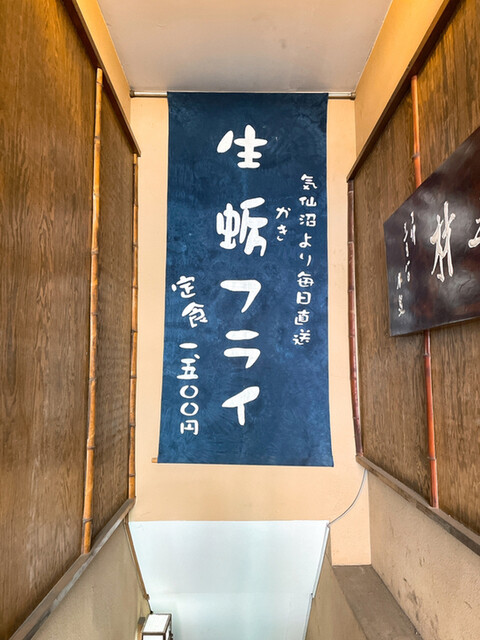 気仙沼より毎日直送
かき
生蛎フライ
定食 一、五〇〇円